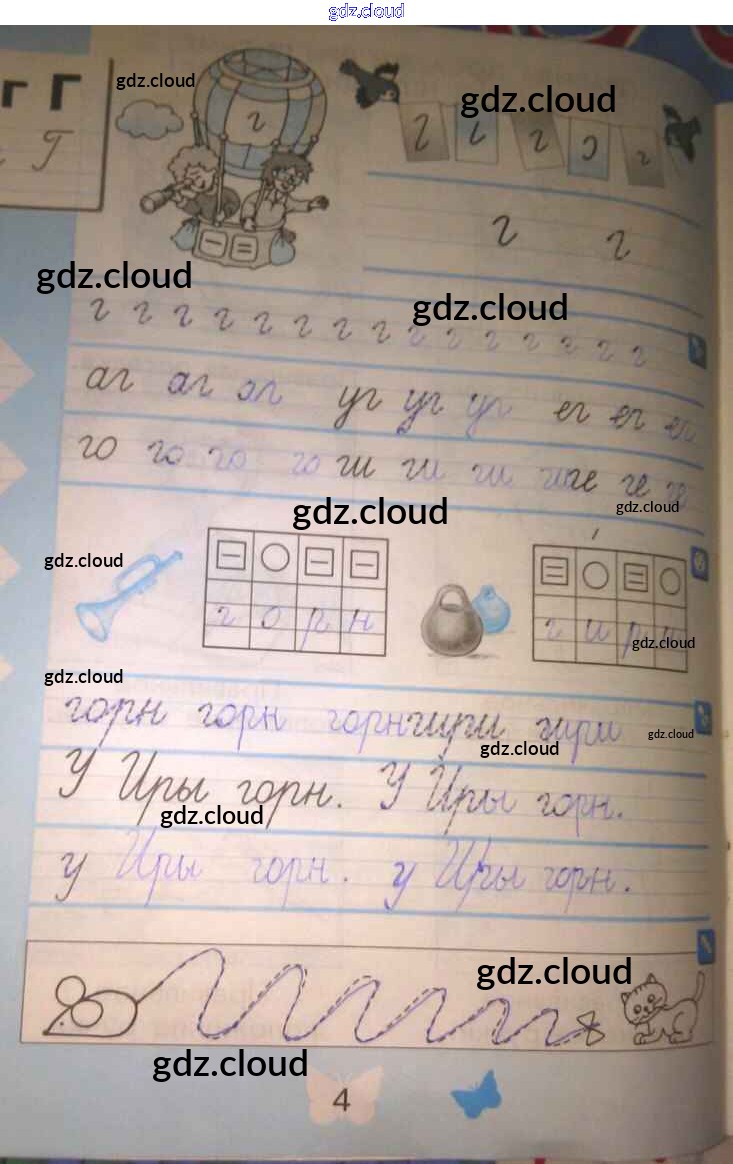 gdz.cloud
г Г
Г
gdz.cloud
г
gdz.cloud
г г г г
г г
gdz.cloud
gdz.cloud
г г г г г г г г г г г г г г г
аг аг аг уг уг уг ег ег ег
го го го го ги ги ги ги ге ге ге
gdz.cloud
gdz.cloud
gdz.cloud
г о р н
г и р и
gdz.cloud
gdz.cloud
горн горн горн гири гири
gdz.cloud
gdz.cloud
У Иры горн. У Иры горн.
gdz.cloud
у Иры горн. у Иры горн.
gdz.cloud
gdz.cloud
4